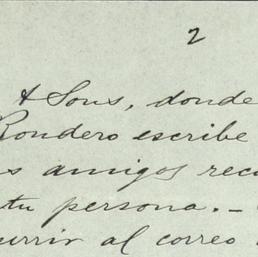 2
& Sons, donde
Rondero escribe
s amigos recu
tu persona. -
urrir al correo